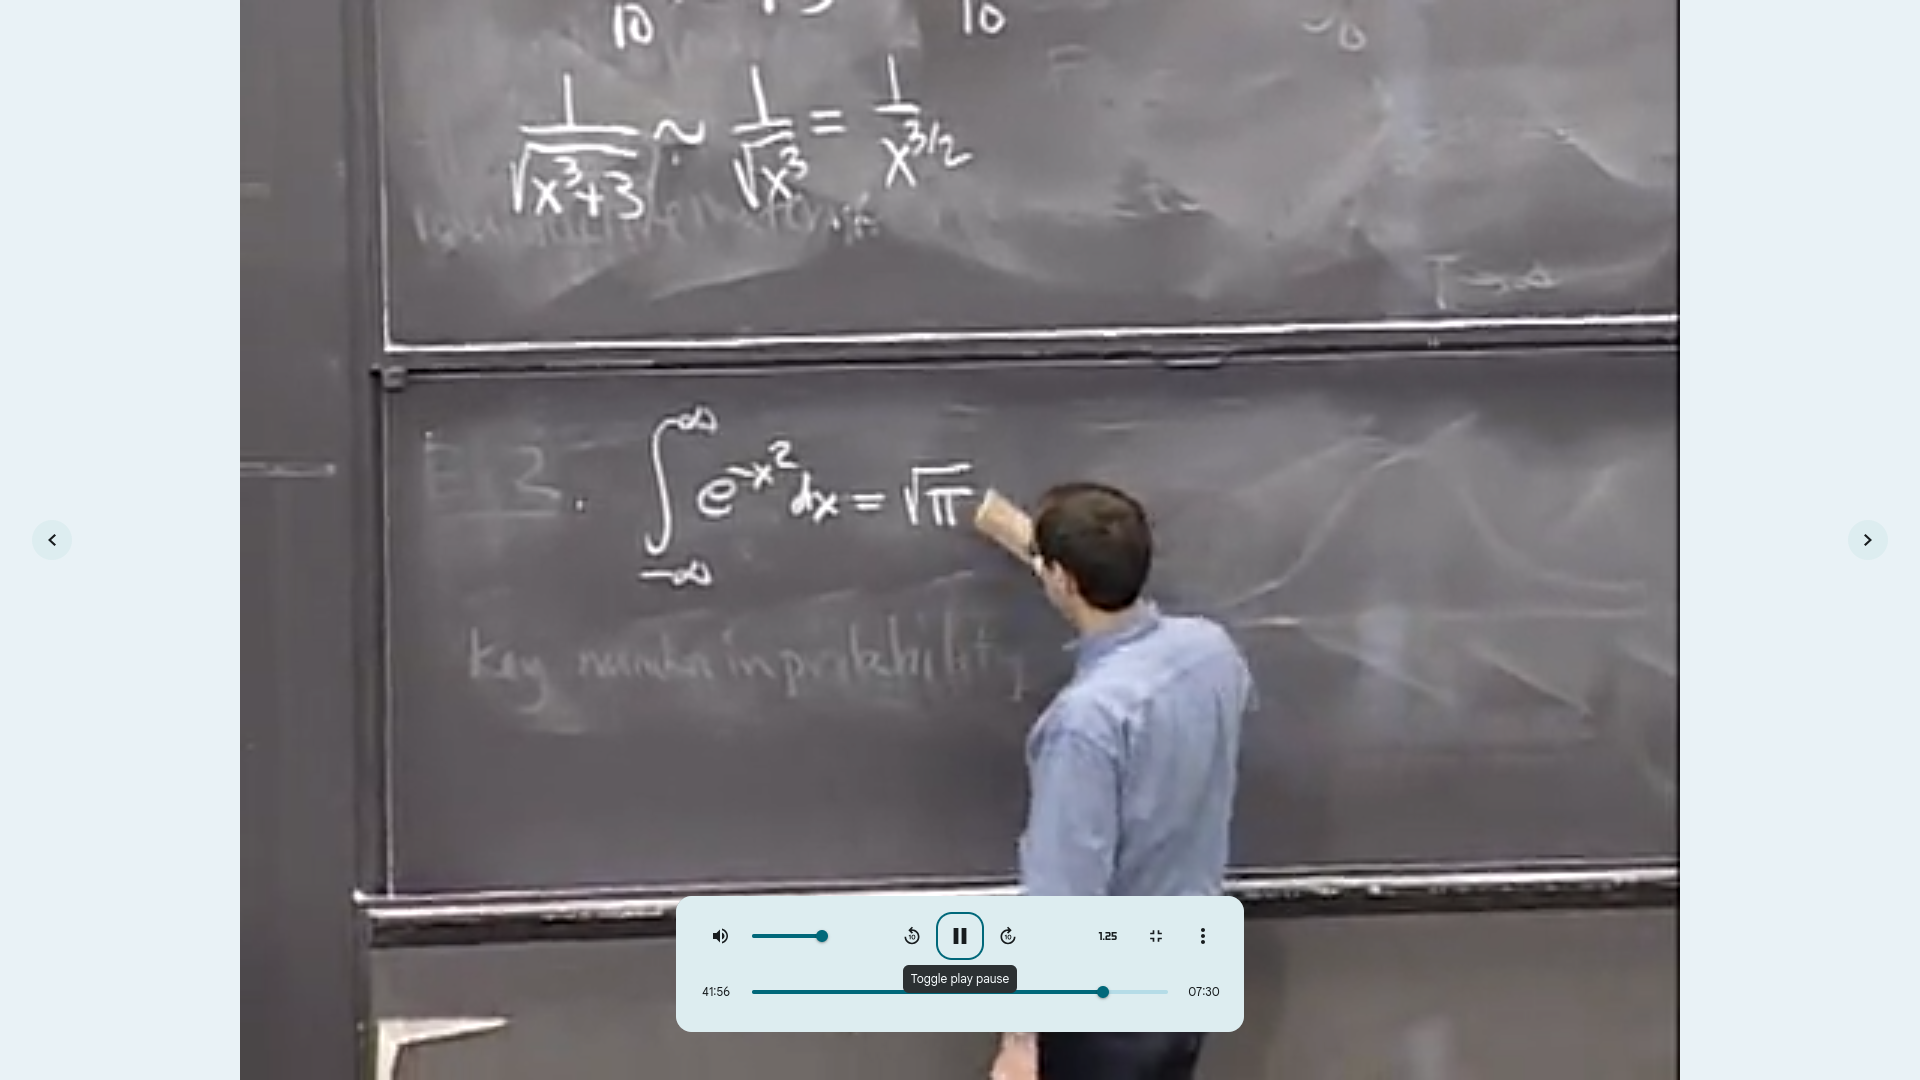 10 10
1/√(x³+3) ~ 1/√(x³) = 1/x^(3/2)
∫_{-∞}^{∞} e^{-x²} dx = √π
Key number in probability
1.25
Toggle play pause
41:56 07:30